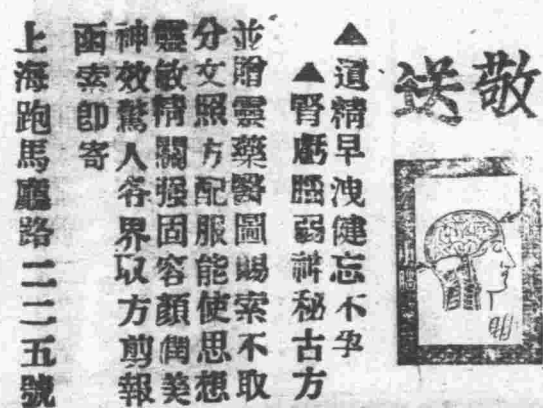 敬送
▲遺精早洩健忘不孕
▲腎虧腦弱神秘古方
並贈靈藥醫圖賜索不取
分文照方配服能使思想
靈敏精關强固容顏潤美
神效驚人各界取方剪報
函索卽寄
上海跑馬廳路二二五號